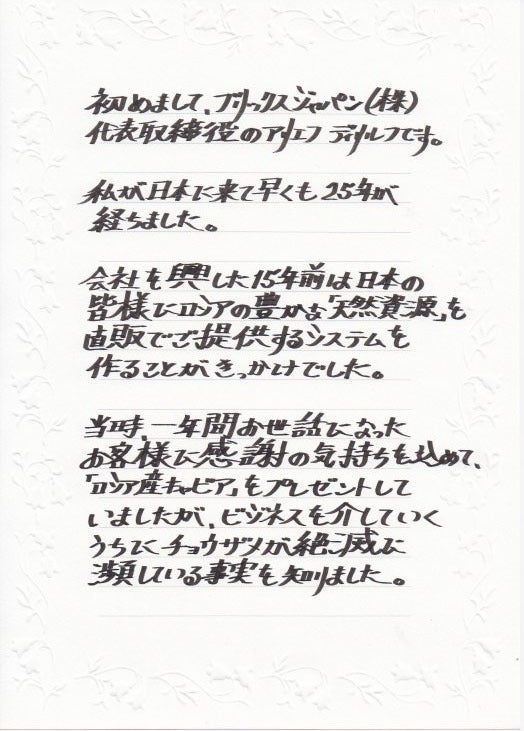 初めまして、ブリックスジャパン(株)
代表取締役のアリエフ ディルルフです。
私が日本に来て早くも25年が
経ちました。
会社を興した15年前は日本の
皆様にロシアの豊かな「天然資源」を
直販でご提供するシステムを
作ることがきっかけでした。
当時、一年間お世話になった
お客様に感謝の気持ちを込めて、
「ロシア産キャビア」をプレゼントして
いましたが、ビジネスを介していく
うちにチョウザメが絶滅に
瀕している事実を知りました。